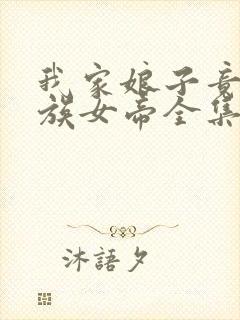 我家娘子竟
族女帝全集
沐語夕